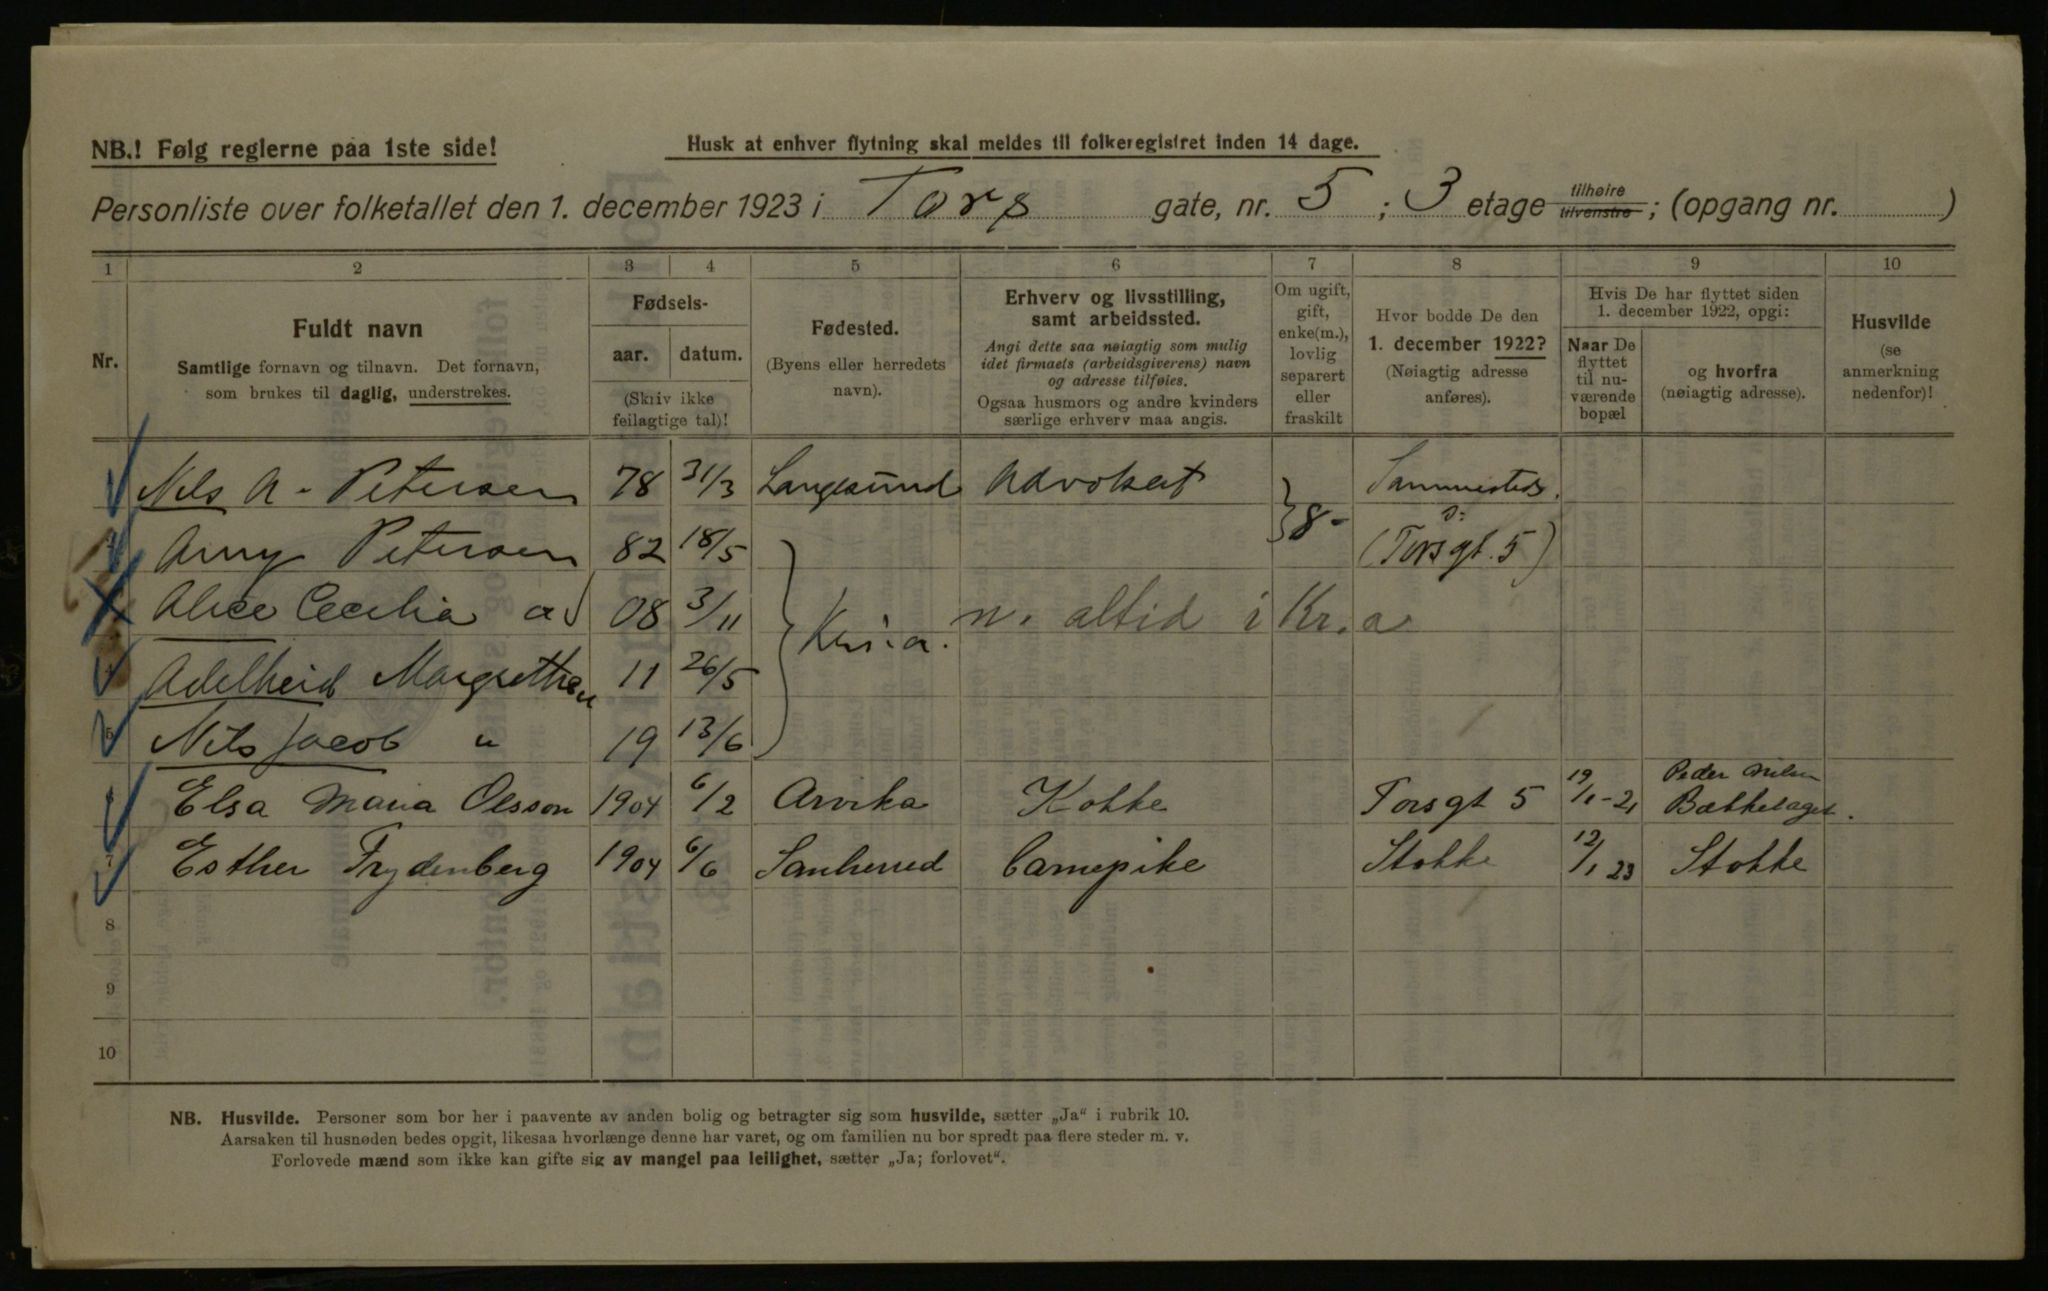 NB.! Følg reglerne paa 1ste side!
Husk at enhver flytning skal meldes til folkeregistret inden 14 dage.
Personliste over folketallet den 1. december 1923 i Tors gate, nr. 5 ; 3 etage tilhøire tilvenstre ; (opgang nr. )
1 2 3 4 5 6 7 8 9 10
Nr.
Fuldt navn
Samtlige fornavn og tilnavn. Det fornavn,
som brukes til daglig, understrekes.
Fødsels-
aar. datum.
(Skriv ikke
feilagtige tal)!
Fødested.
(Byens eller herredets
navn).
Erhverv og livsstilling,
samt arbeidssted.
Angi dette saa nøiagtig som mulig
idet firmaets (arbeidsgiverens) navn
og adresse tilføies.
Ogsaa husmors og andre kvinders
særlige erhverv maa angis.
Om ugift,
gift,
enke(m.),
lovlig
separert
eller
fraskilt
Hvor bodde De den
1. december 1922?
(Nøiagtig adresse
anføres).
Hvis De har flyttet siden
1. december 1922, opgi:
Naar De
flyttet
til nu-
værende
bopæl
og hvorfra
(nøiagtig adresse).
Husvilde
(se
anmerkning
nedenfor)!
Nils A. Petersen 78 31/3 Langesund Advokat } g. Sammesteds.
Amy Petersen 82 18/5 (Torsgt. 5)
Alice Cecilia 08 3/11 n. altid i Kr.a
Kr.a.
4 Adelheid Margrethe " 11 26/5
5 Nils Jacob " 19 13/6
Elsa Maria Olsson 1904 6/2 Arvika Kokke Torsgt 5 19/1-21 Peder Nilsen
Bækkelaget.
7 Esther Frydenberg 1904 6/6 Sanherred Barnepike Stokke 12/1 23 Stokke
8
9
10
NB. Husvilde. Personer som bor her i paavente av anden bolig og betragter sig som husvilde, sætter „Ja“ i rubrik 10.
Aarsaken til husnøden bedes opgit, likesaa hvorlænge denne har varet, og om familien nu bor spredt paa flere steder m. v.
Forlovede mænd som ikke kan gifte sig av mangel paa leilighet, sætter „Ja; forlovet“.